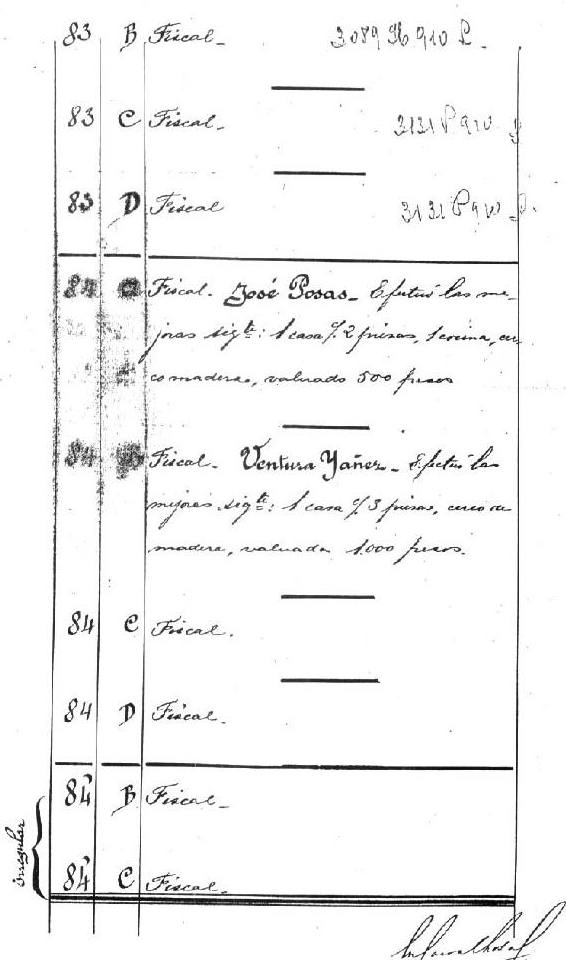 83 B Fiscal_ 3089 H 910 L.
83 C Fiscal. 3131 P 910
83 D Fiscal 3131 P 910
84 a Fiscal. José Posas_ Efectuó las me-
joras sigte: 1 casa % 2 piezas, 1 cocina, cer-
co madera, valuado 500 pesos
84 Fiscal. Ventura Yañez_ Efectuó las
mejoras sigte: 1 casa % 3 piezas, cerco de
madera, valuada 1.000 pesos.
84 C Fiscal.
84 D Fiscal.
84' B Fiscal_
irregular
84' C Fiscal.